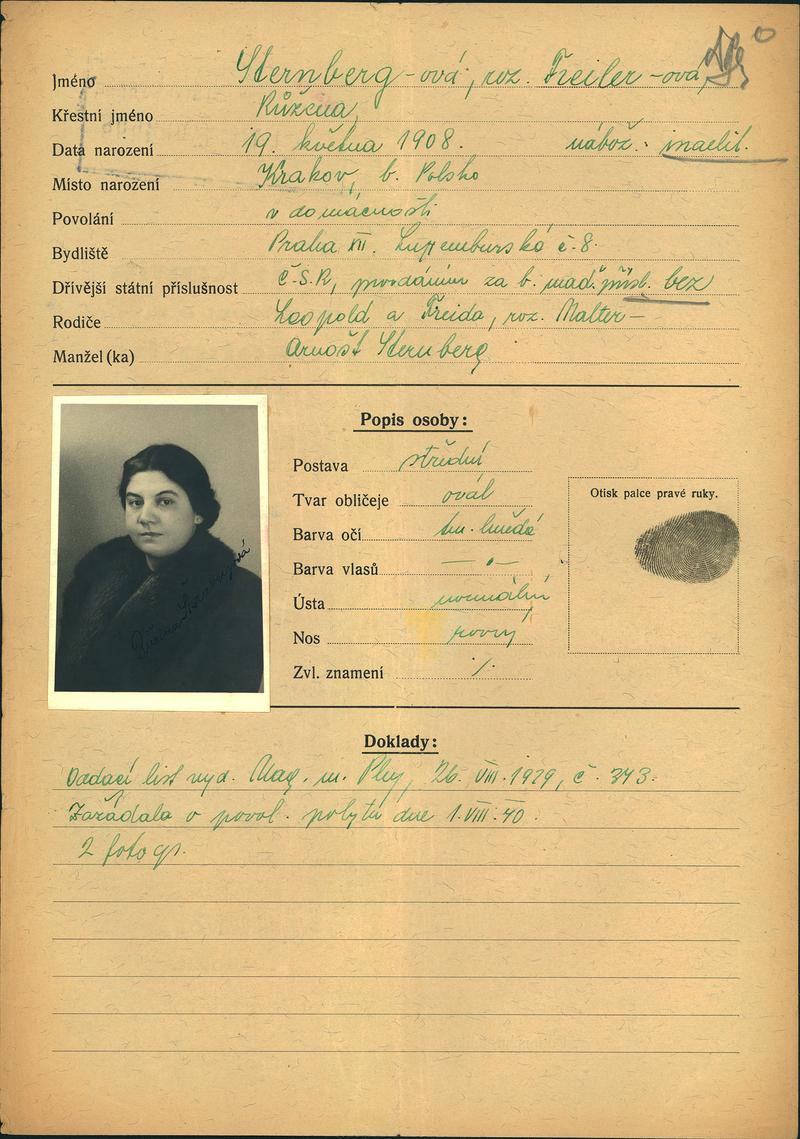 Jméno Sternberg-ová, roz. Freiler-ová
Křestní jméno Růžena
Data narození 19. května 1908. nábož.: israelit.
Místo narození Krakov, b. Polsko
Povolání v domácnosti
Bydliště Praha VII. Luxemburská č. 8.
Dřívější státní příslušnost Č.S.R, provdáním za b. maď. přísl. bez
Rodiče Leopold a Freida, roz. Malter-
Manžel (ka) Arnošt Sternberg
Popis osoby:
Postava střední
Tvar obličeje ovál
Barva očí tm. hnědé
Barva vlasů —„—
Ústa normální
Nos rovný
Zvl. znamení ·/.
Otisk palce pravé ruky.
Růžena Sternbergová
Doklady:
Oddací list vyd. Mag. m. Phy, 26. VIII. 1929, č. 343.
Zažádala o povol. pobytu dne 1. VIII. 40.
2 fotogr.